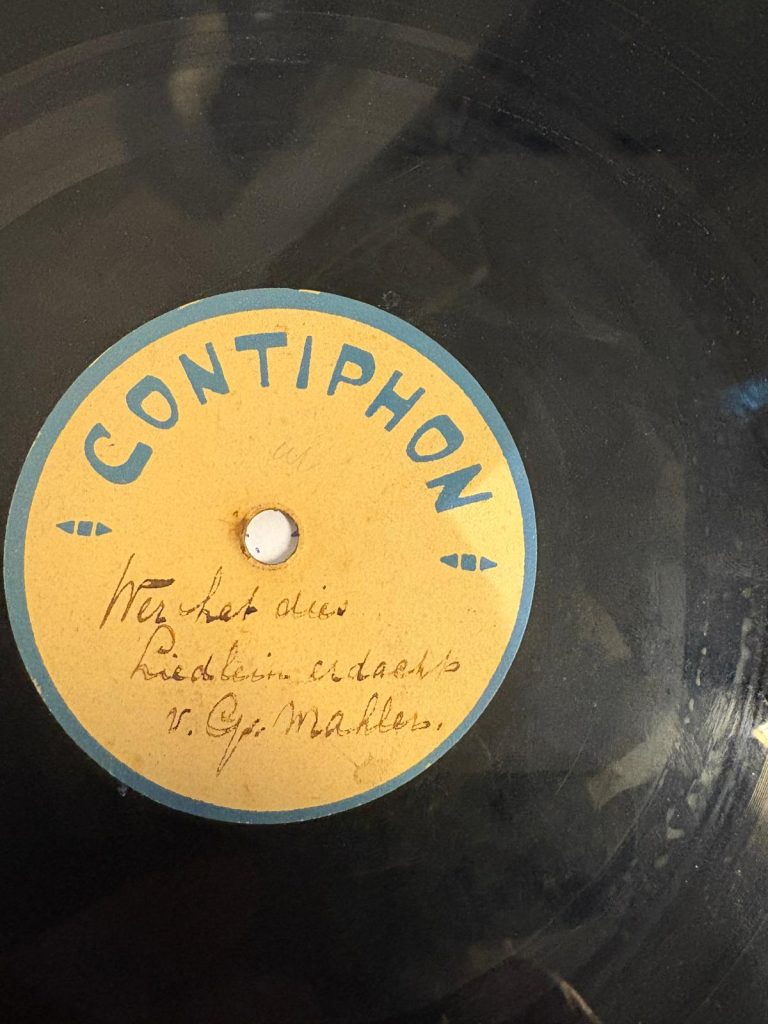 CONTIPHON
Wer hat dies
Liedlein erdacht
v. G. Mahler.